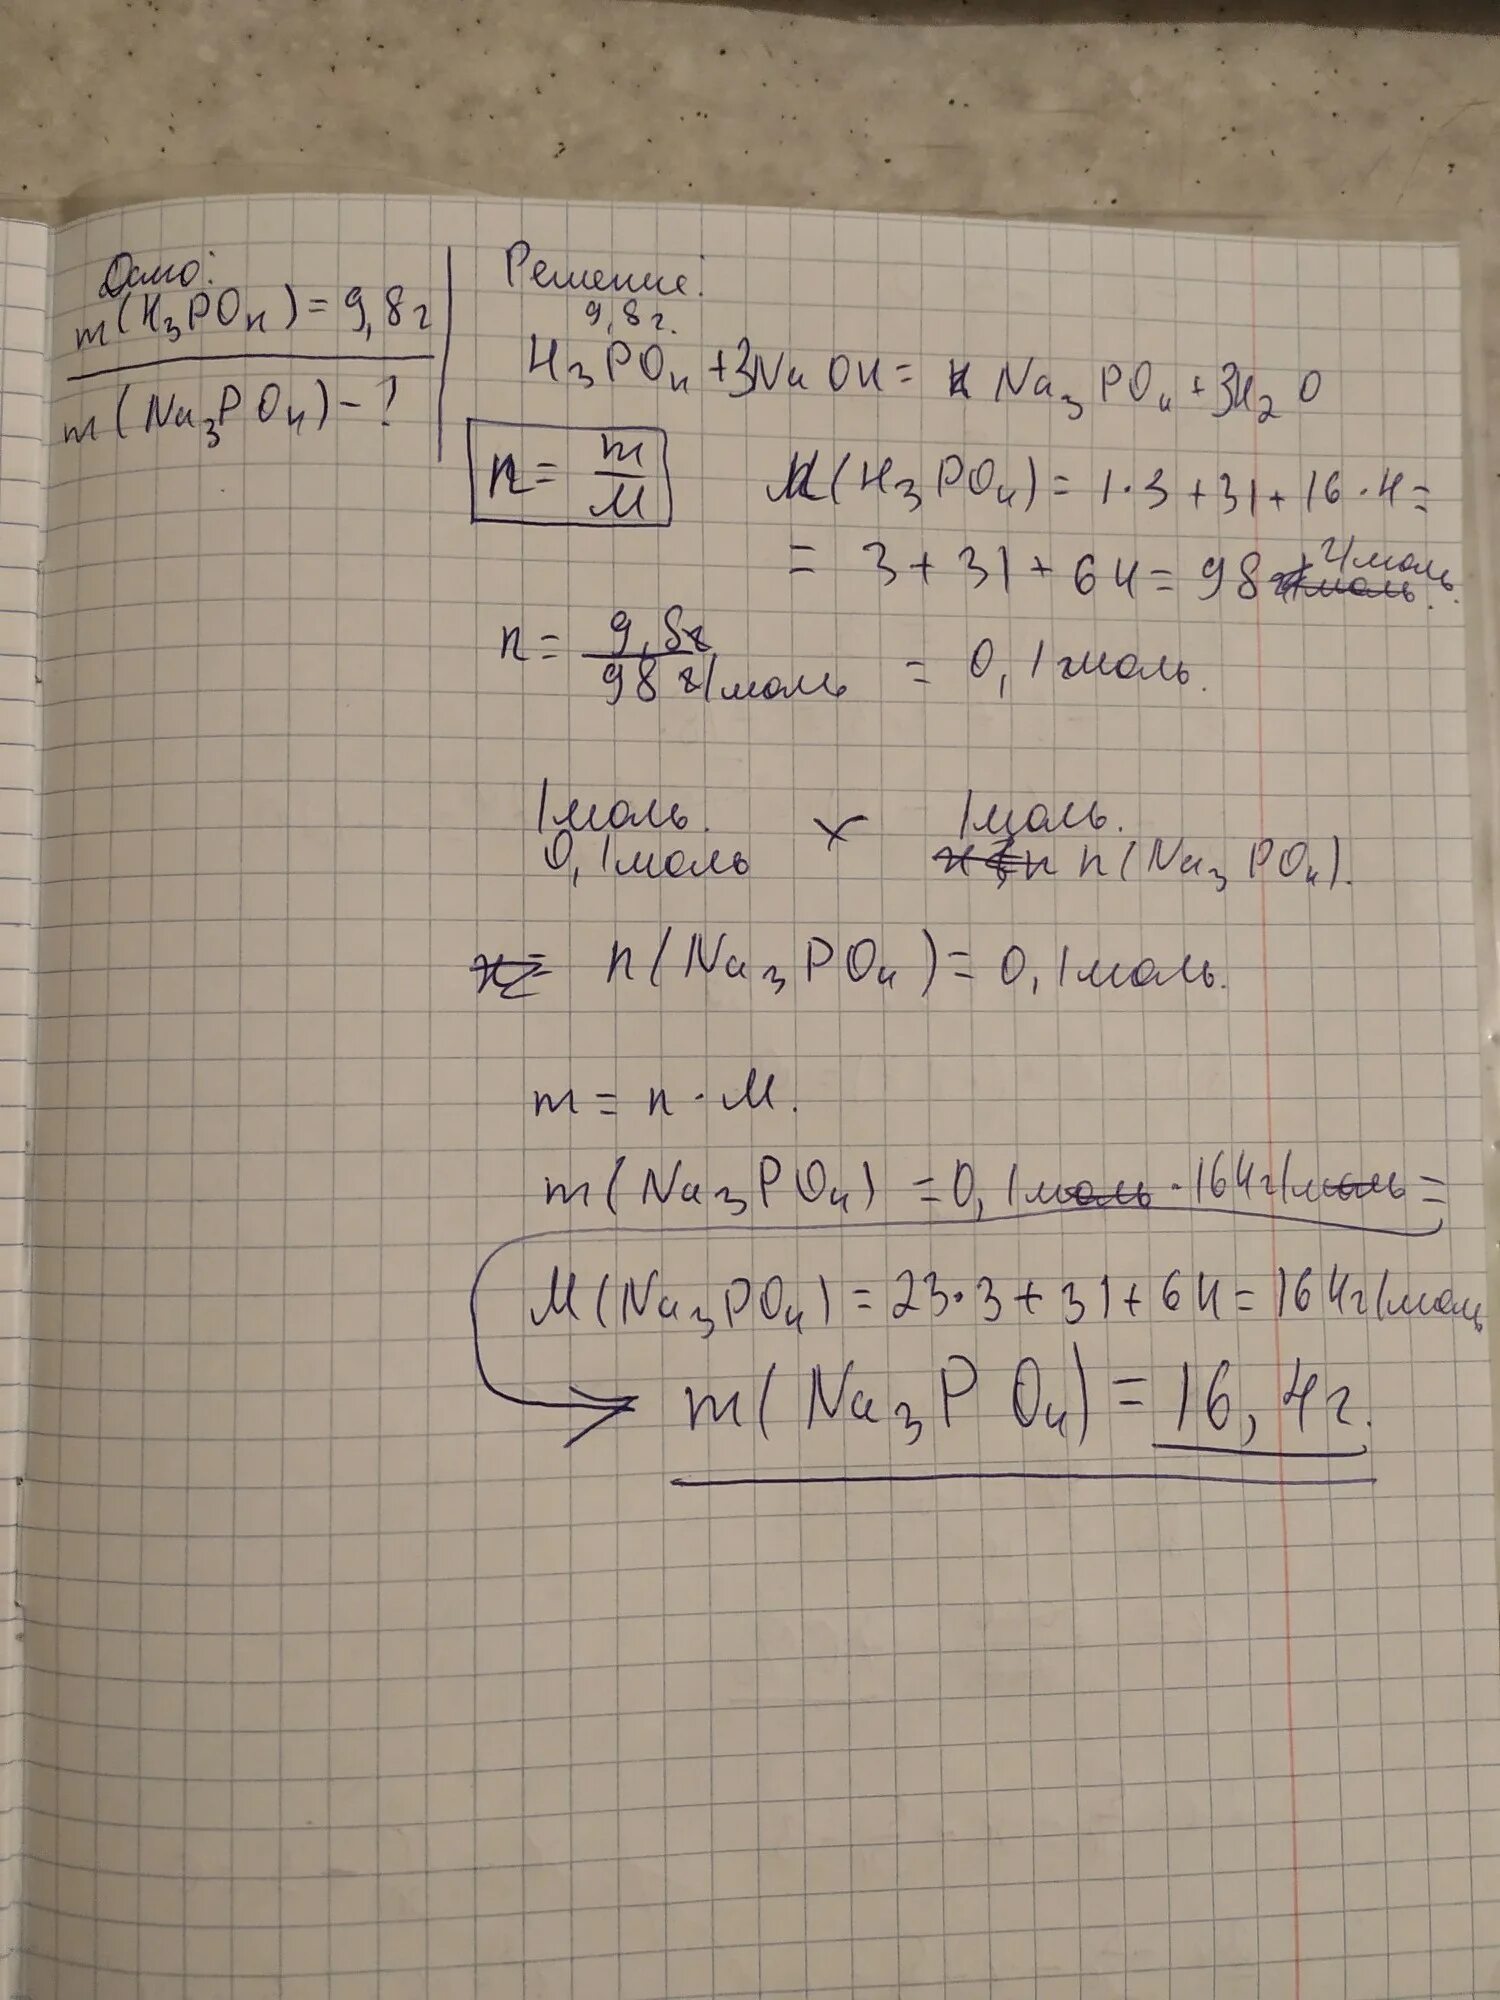 Дано:
m(H₃PO₄) = 9,8г
m(Na₃PO₄) - ?
Решение:
9,8г.
H₃PO₄ + 3NaOH = Na₃PO₄ + 3H₂O
n = m/M
M(H₃PO₄) = 1·3 + 31 + 16·4 =
= 3 + 31 + 64 = 98 г/моль
n = 9,8г / 98 г/моль = 0,1 моль.
1моль. x 1моль.
0,1моль n(Na₃PO₄).
n(Na₃PO₄) = 0,1моль.
m = n · M.
m(Na₃PO₄) = 0,1моль · 164г/моль =
M(Na₃PO₄) = 23·3 + 31 + 64 = 164г/моль
m(Na₃PO₄) = 16,4г.